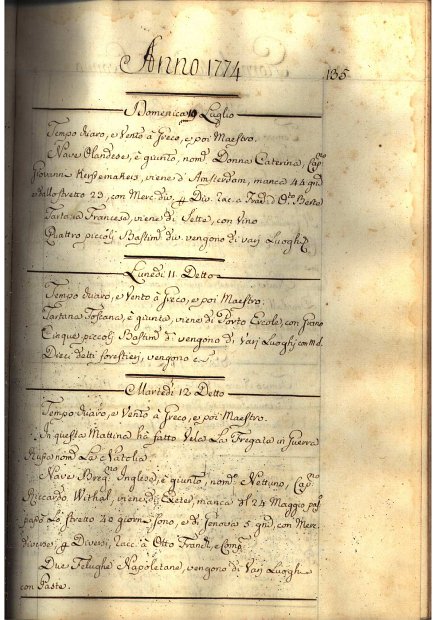 Anno 1774
135
Domenica 10 Luglio
Tempo chiaro, e Vento à Greco, e poi Maestro.
Nave Olandese, è giunto, nom. Donna Caterina, Cap.no
Giovanni viene d'Amsterdam, manca 44 gni
e dallo stretto 23, con Merc. div.
Tartana Francese, viene di Sette, con Vino
Quattro piccoli Bastim. div. vengono di varj Luoghi
Lunedì 11 Detto
Tempo chiaro, e Vento à Greco, e poi Maestro.
Tartana Toscana, è giunta, viene di Porto Ercole, con Grano
Cinque piccoli Bastim. d. vengono di Varj Luoghi, con
Dieci detti forestieri, vengono
Martedì 12 Detto
Tempo chiaro, e Vento à Greco, e poi Maestro.
In questa Mattina hà fatto Vela La Fregata in Guerra
Russa nom. La Natolia.
Nave Breg.no Inglese, è giunto, nom. Nettuno, Cap.no
Riccardo Withal, viene di Exeter, manca dl 24 Maggio,
passò Lo stretto 20 giorni sono, e di Genova 5 gni, con Merc.
diverse, p Diversi, racc. à Otto Franck, e Comp.
Due Felughe Napoletane, vengono di Varj Luoghi
con Paste.